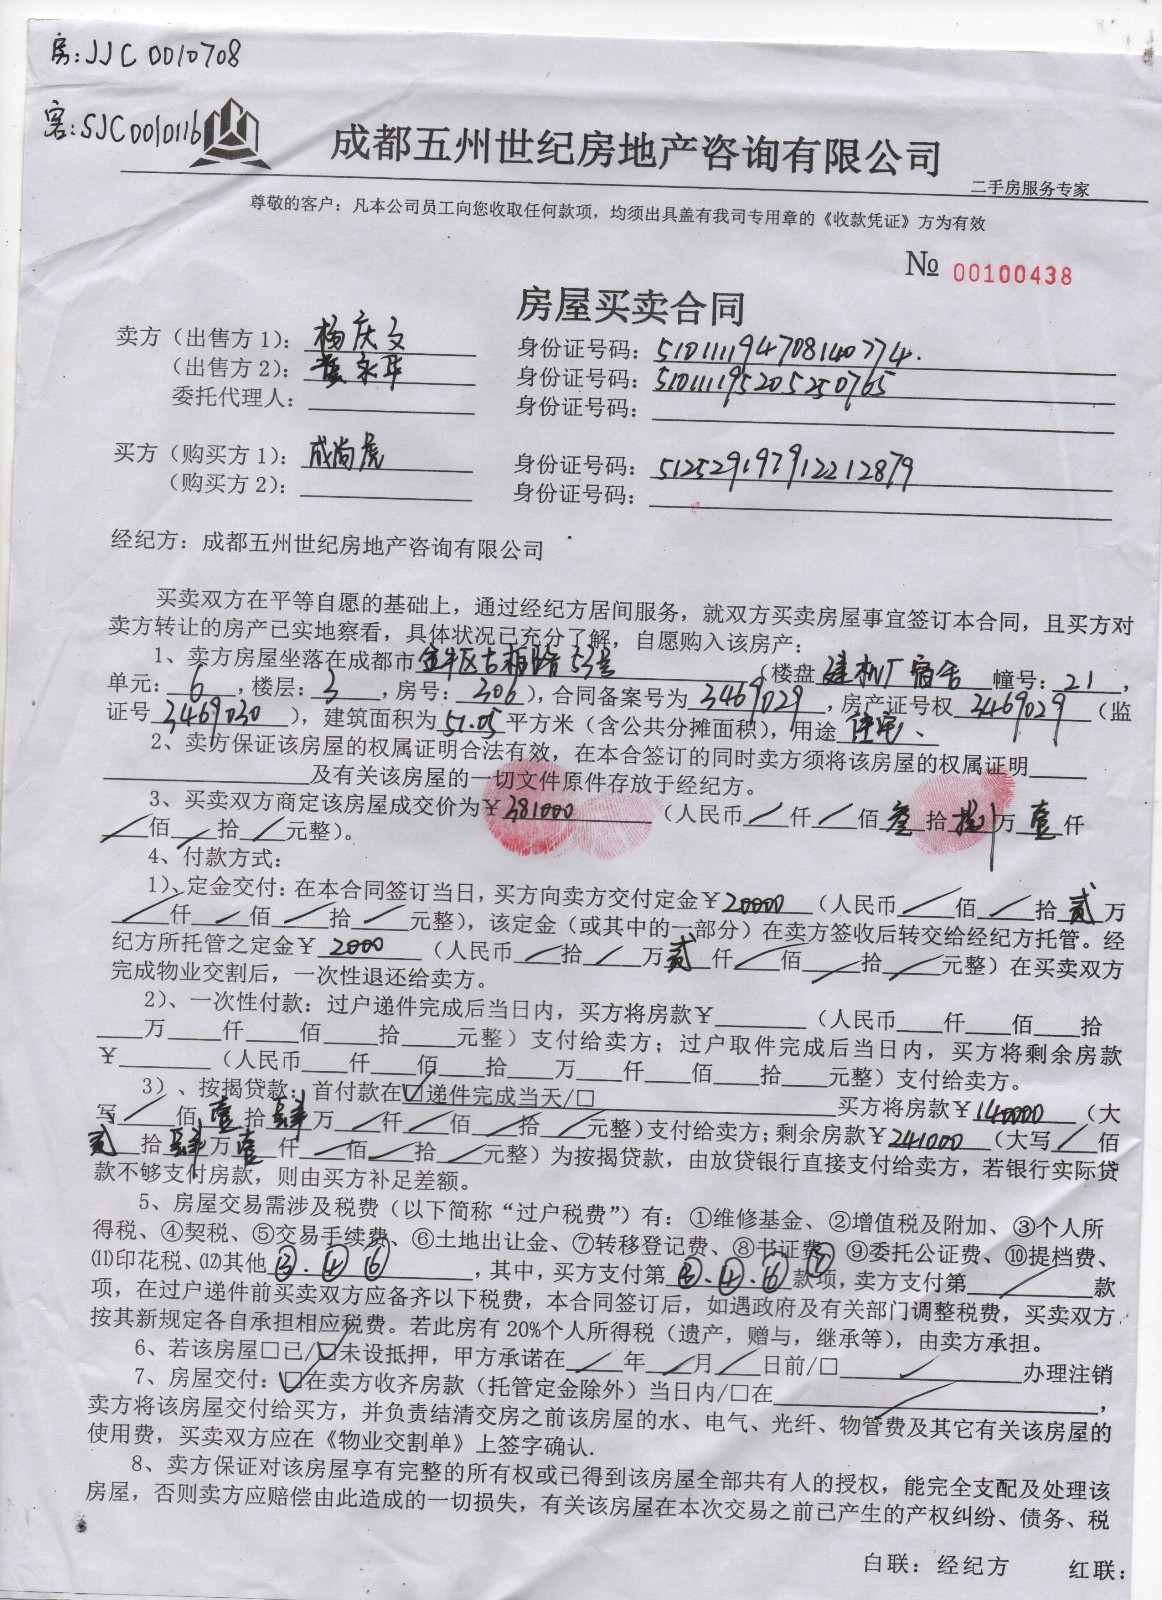 房:JJC 0010708
客:SJC0010116
成都五州世纪房地产咨询有限公司
二手房服务专家
尊敬的客户：凡本公司员工向您收取任何款项，均须出具盖有我司专用章的《收款凭证》方为有效
№ 00100438
房屋买卖合同
卖方（出售方1）：杨庆文 身份证号码：510111194708140774.
（出售方2）：黄永华 身份证号码：510111195205250765
委托代理人：＿＿＿ 身份证号码：＿＿＿
买方（购买方1）：成尚虎 身份证号码：512529197912212879
（购买方2）：＿＿＿ 身份证号码：＿＿＿
经纪方：成都五州世纪房地产咨询有限公司
买卖双方在平等自愿的基础上，通过经纪方居间服务，就双方买卖房屋事宜签订本合同，且买方对
卖方转让的房产已实地察看，具体状况已充分了解，自愿购入该房产：
1、卖方房屋坐落在成都市金牛区古柏路53号（楼盘建机厂宿舍 幢号：21，
单元：6，楼层：3，房号：306），合同备案号为3469029，房产证号权3469029（监
证号3469030），建筑面积为51.05平方米（含公共分摊面积），用途住宅、
2、卖方保证该房屋的权属证明合法有效，在本合签订的同时卖方须将该房屋的权属证明＿＿
＿＿＿及有关该房屋的一切文件原件存放于经纪方。
3、买卖双方商定该房屋成交价为￥381000（人民币／仟／佰叁拾捌万壹仟
／佰／拾／元整）。
4、付款方式：
1）、定金交付：在本合同签订当日，买方向卖方交付定金￥20000（人民币／佰／拾贰万
／仟／佰／拾／元整），该定金（或其中的一部分）在卖方签收后转交给经纪方托管。经
纪方所托管之定金￥2000（人民币／拾／万贰仟／佰／拾／元整）在买卖双方
完成物业交割后，一次性退还给卖方。
2）、一次性付款：过户递件完成后当日内，买方将房款￥＿＿＿（人民币＿＿仟＿＿佰＿＿拾
＿＿万＿＿仟＿＿佰＿＿拾＿＿元整）支付给卖方；过户取件完成后当日内，买方将剩余房款
￥＿＿＿（人民币＿＿仟＿＿佰＿＿拾＿＿万＿＿仟＿＿佰＿＿拾＿＿元整）支付给卖方。
3）、按揭贷款：首付款在☑递件完成当天/□＿＿＿买方将房款￥140000（大
写／佰壹拾肆万／仟／佰／拾／元整）支付给卖方；剩余房款￥241000（大写／佰
贰拾肆万壹仟／佰／拾／元整）为按揭贷款，由放贷银行直接支付给卖方，若银行实际贷
款不够支付房款，则由买方补足差额。
5、房屋交易需涉及税费（以下简称“过户税费”）有：①维修基金、②增值税及附加、③个人所
得税、④契税、⑤交易手续费、⑥土地出让金、⑦转移登记费、⑧书证费、⑨委托公证费、⑩提档费、
⑾印花税、⑿其他③.④⑥，其中，买方支付第③.④.⑥⑦款项，卖方支付第／款
项，在过户递件前买卖双方应备齐以下税费，本合同签订后，如遇政府及有关部门调整税费，买卖双方
按其新规定各自承担相应税费。若此房有20%个人所得税（遗产，赠与，继承等），由卖方承担。
6、若该房屋□已/☑未设抵押，甲方承诺在／年／月／日前/□＿＿＿办理注销
7、房屋交付：☑在卖方收齐房款（托管定金除外）当日内/□在＿＿＿，
卖方将该房屋交付给买方，并负责结清交房之前该房屋的水、电气、光纤、物管费及其它有关该房屋的
使用费，买卖双方应在《物业交割单》上签字确认.
8、卖方保证对该房屋享有完整的所有权或已得到该房屋全部共有人的授权，能完全支配及处理该
房屋，否则卖方应赔偿由此造成的一切损失，有关该房屋在本次交易之前已产生的产权纠纷、债务、税
白联：经纪方 红联：